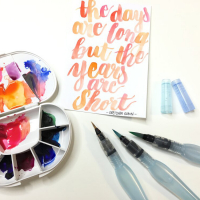 the days
are long
but the
years
are
short